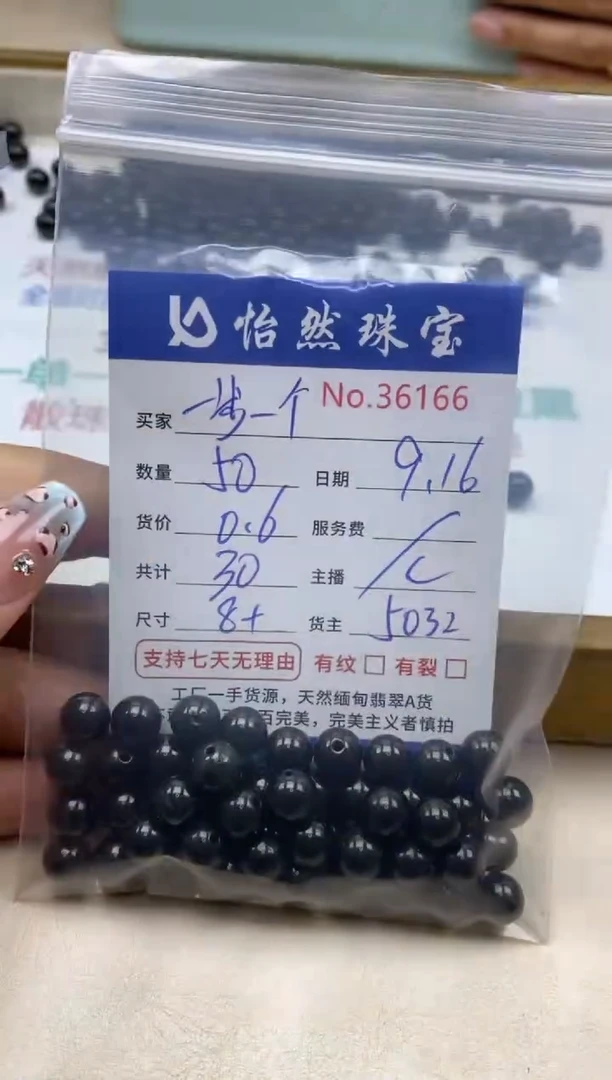 怡然珠宝
No.36166
买家 一步一个
数量 50 日期 9.16
货价 0.6 服务费 /
共计 30 主播 /
尺寸 8+ 货主 5032
支持七天无理由 有纹 □ 有裂 □
工厂一手货源，天然缅甸翡翠A货
百完美，完美主义者慎拍